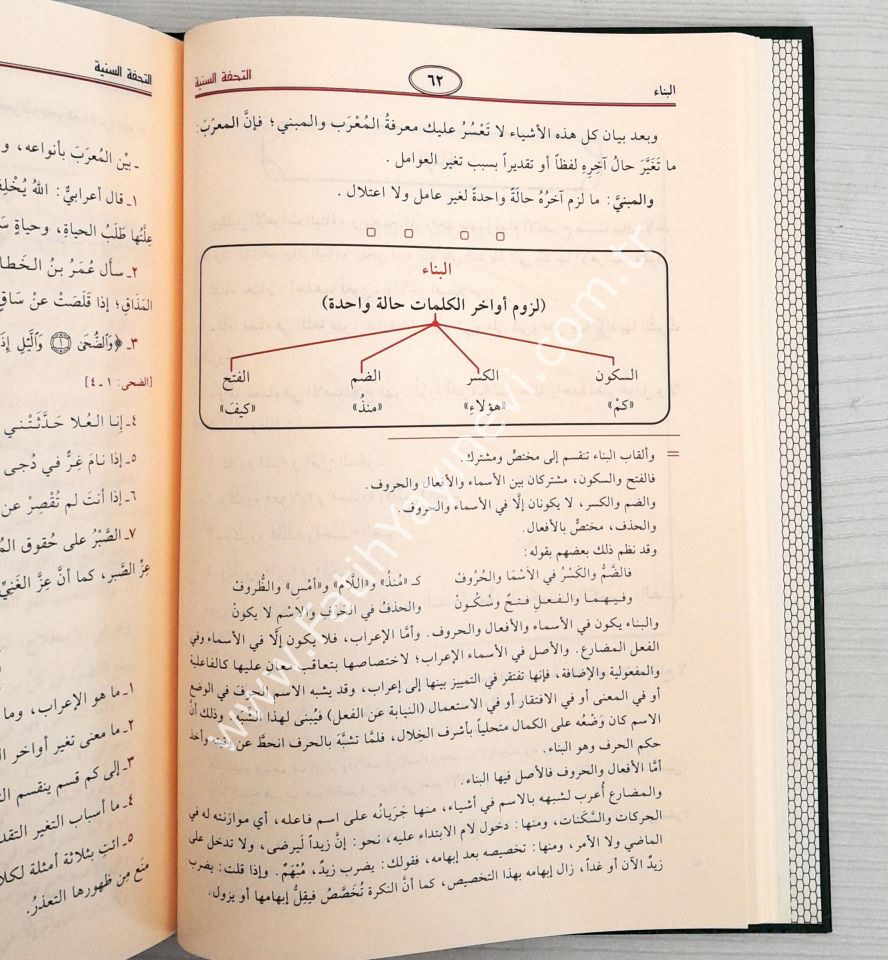 البناء
٦٢
التحفة السنية
وبعد بيان كل هذه الأشياء لا تَعْسُرُ عليك معرفةُ المُعْرَب والمبني؛ فإنَّ المعرَبَ:
ما تَغَيَّرَ حالُ آخِرِهِ لفظاً أو تقديراً بسبب تغير العوامل.
والمبنيَّ: ما لزم آخرُهُ حالةً واحدةً لغير عامل ولا اعتلال.
البناء
(لزوم أواخر الكلمات حالة واحدة)
السكون الكسر الضم الفتح
«كمْ» «هؤلاءِ» «منذُ» «كيفَ»
وألقاب البناء تنقسم إلى مختصٍّ ومشترك.
فالفتح والسكون، مشتركان بين الأسماء والأفعال والحروف.
والضم والكسر، لا يكونان إلَّا في الأسماء والحروف.
والحذف، مختصٌّ بالأفعال.
وقد نظم ذلك بعضهم بقوله:
فالضَّمُّ والكَسْرُ في الأسْمَا والحُرُوف كـ «مُنذُ» و«اللَّام» و«أمْسِ» والظُّروف
وفيهـمـا والـفـعـلِ فـتـحٌ وسُـكُـونْ والحذفُ في الحَرْفِ والاسْمِ لا يكونْ
والبناء يكون في الأسماء والأفعال والحروف. وأمَّا الإعراب، فلا يكون إلَّا في الأسماء وفي
الفعل المضارع. والأصل في الأسماء الإعراب؛ لاختصاصها بتعاقب معان عليها كالفاعلية
والمفعولية والإضافة، فإنها تفتقر في التمييز بينها إلى إعراب، وقد يشبه الاسم الحرف في الوضع
أو في المعنى أو في الافتقار أو في الاستعمال (النيابة عن الفعل) فيُبنى لهذا الشبه، وذلك أنَّ
الاسم كان وَضْعُه على الكمال متحلياً بأشرف الخِلال، فلمَّا تشبَّه بالحرف انحطَّ عن رتبته وأخذ
حكم الحرف وهو البناء.
أمَّا الأفعال والحروف فالأصل فيها البناء.
والمضارع أُعرب لشبهه بالاسم في أشياء، منها جَرَيانُه على اسم فاعله، أي موازنته له في
الحركات والسَّكَنات، ومنها: دخول لام الابتداء عليه، نحو: إنَّ زيداً لَيرضى، ولا تدخل على
الماضي ولا الأمر، ومنها: تخصيصه بعد إبهامه، فقولك: يضرب زيدٌ، مُبْهَمٌ. وإذا قلت: يضرب
زيدٌ الآن أو غداً، زال إبهامه بهذا التخصيص، كما أنَّ النكرة تُخَصَّصُ فيَقِلُّ إبهامها أو يزول.
التحفة السنية
ـ بيِّن المُعرَبَ بأنواعه، و
١ـ قال أعرابيٌّ: اللهُ يُخْلِفُ
عِلَّتُها طَلَبُ الحياةِ، وحياةٍ سَ
٢ـ سأل عُمَرُ بنُ الخَطا
المَذَاقِ؛ إذا قَلَصَتْ عنْ سَاقٍ
٣ـ ﴿وَٱلضُّحَىٰ ۝١ وَٱلَّيْلِ إِذَ
[الضحى: ١ـ٤]
٤ـ إنا العُلا حَدَّثَتْني
٥ـ إذا نامَ غِرٌّ في دُجى
٦ـ إذا أنتَ لم تُقْصِرْ عن
٧ـ الصَّبْرُ على حُقوق المُ
عِزِّ الصبر، كما أنَّ عِزَّ الغَنِيِّ
١ـ ما هو الإعراب، وما
٢ـ ما معنى تغير أواخر ا
٣ـ إلى كم قسم ينقسم الت
٤ـ ما أسباب التغير التقد
٥ـ ائتِ بثلاثة أمثلة لكلا
منَع مِن ظهورها التعذرُ.
www.FatihYayinevi.com.tr